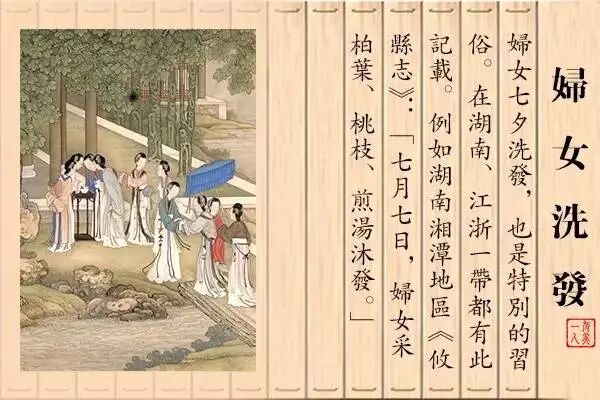 婦女洗發
婦女七夕洗發，也是特別的習
俗。在湖南、江浙一帶都有此
記載。例如湖南湘潭地區《攸
縣志》：「七月七日，婦女采
柏葉、桃枝，煎湯沐發。」